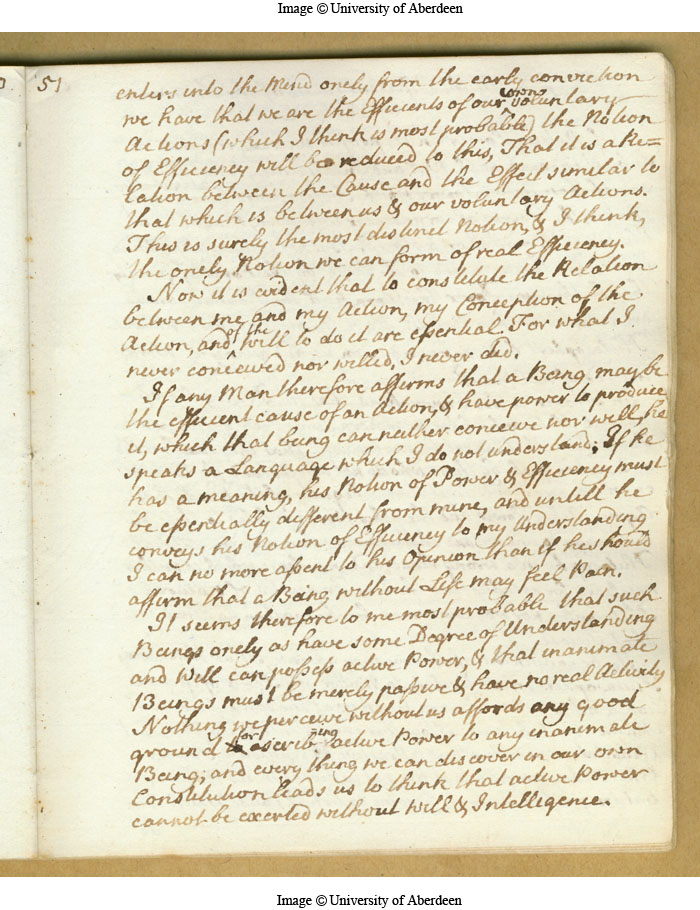 Image © University of Aberdeen
51
enters into the Mind onely from the early conviction
we have that we are the Efficients of our own voluntary
Actions (which I think is most probable) the Notion
of Efficiency will be reduced to this, That it is a Re=
lation between the Cause and the Effect similar to
that which is between us & our voluntary Actions.
This is surely the most distinct Notion, & I think,
the onely Notion we can form of real Efficiency.
Now it is evident that to constitute the Relation
between me and my Action, my Conception of the
Action, and of the Will to do it are essential. For what I
never conceived nor willed, I never did.
If any Man therefore affirms that a Being may be
the efficient cause of an Action, & have power to produce
it, which that being can neither conceive nor will, he
speaks a Language which I do not understand; If he
has a meaning, his Notion of Power & Efficiency must
be essentially different from mine, and untill he
conveys his Notion of Efficiency to my Understanding
I can no more assent to his Opinion than if he should
affirm that a Being without Life may feel Pain.
It seems therefore to me most probable that such
Beings onely as have some Degree of Understanding
and Will can possess active Power, & that inanimate
Beings must be merely passive & have no real Activity
Nothing we perceive without us affords any good
ground for ascribing active Power to any inanimate
Being; and every thing we can discover in our own
Constitution leads us to think that active Power
cannot be exerted without Will & Intelligence.
Image © University of Aberdeen